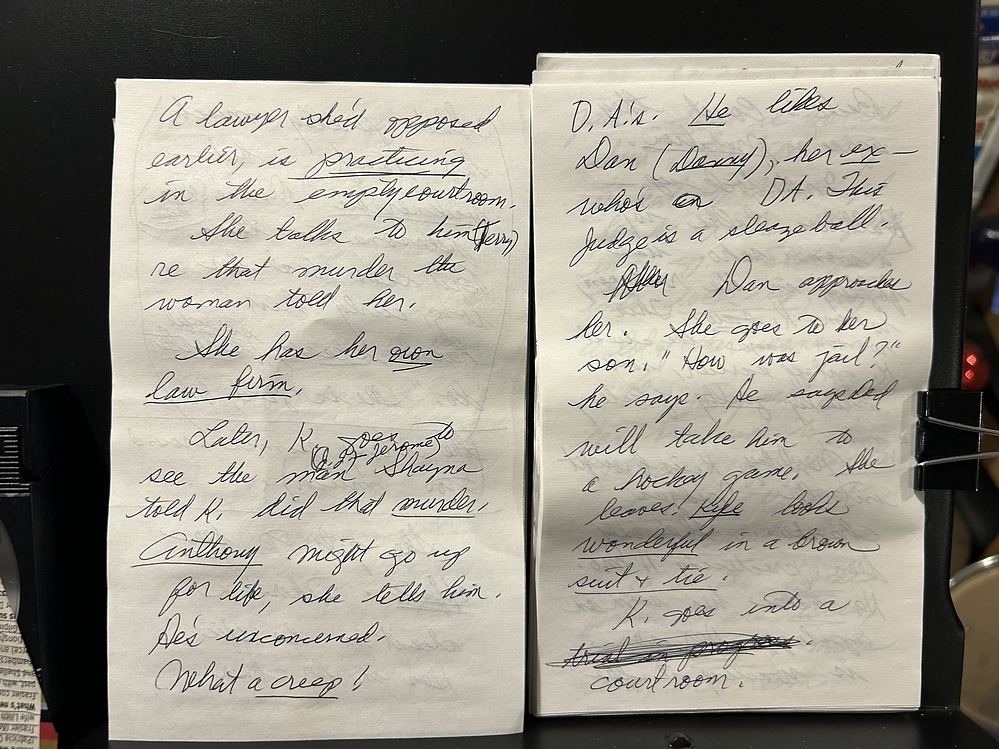 A lawyer she'd opposed
earlier, is practicing
in the empty courtroom.
She talks to him (Jerry)
re that murder the
woman told her.
She has her own
law firm.
Later, K. goes to
see the man Shayna
told K. did that murder.
Anthony might go up
for life, she tells him.
He's unconcerned.
What a creep!
D.A.'s. He likes
Dan (Danny), her ex—
who's DA. This
judge is a sleazeball.
Dan approaches
her. She goes to her
son. "How was jail?"
he says. He says dad
will take him to
a hockey game. She
leaves. Kyle looks
wonderful in a brown
suit + tie.
K. goes into a
trial in progress.
courtroom.